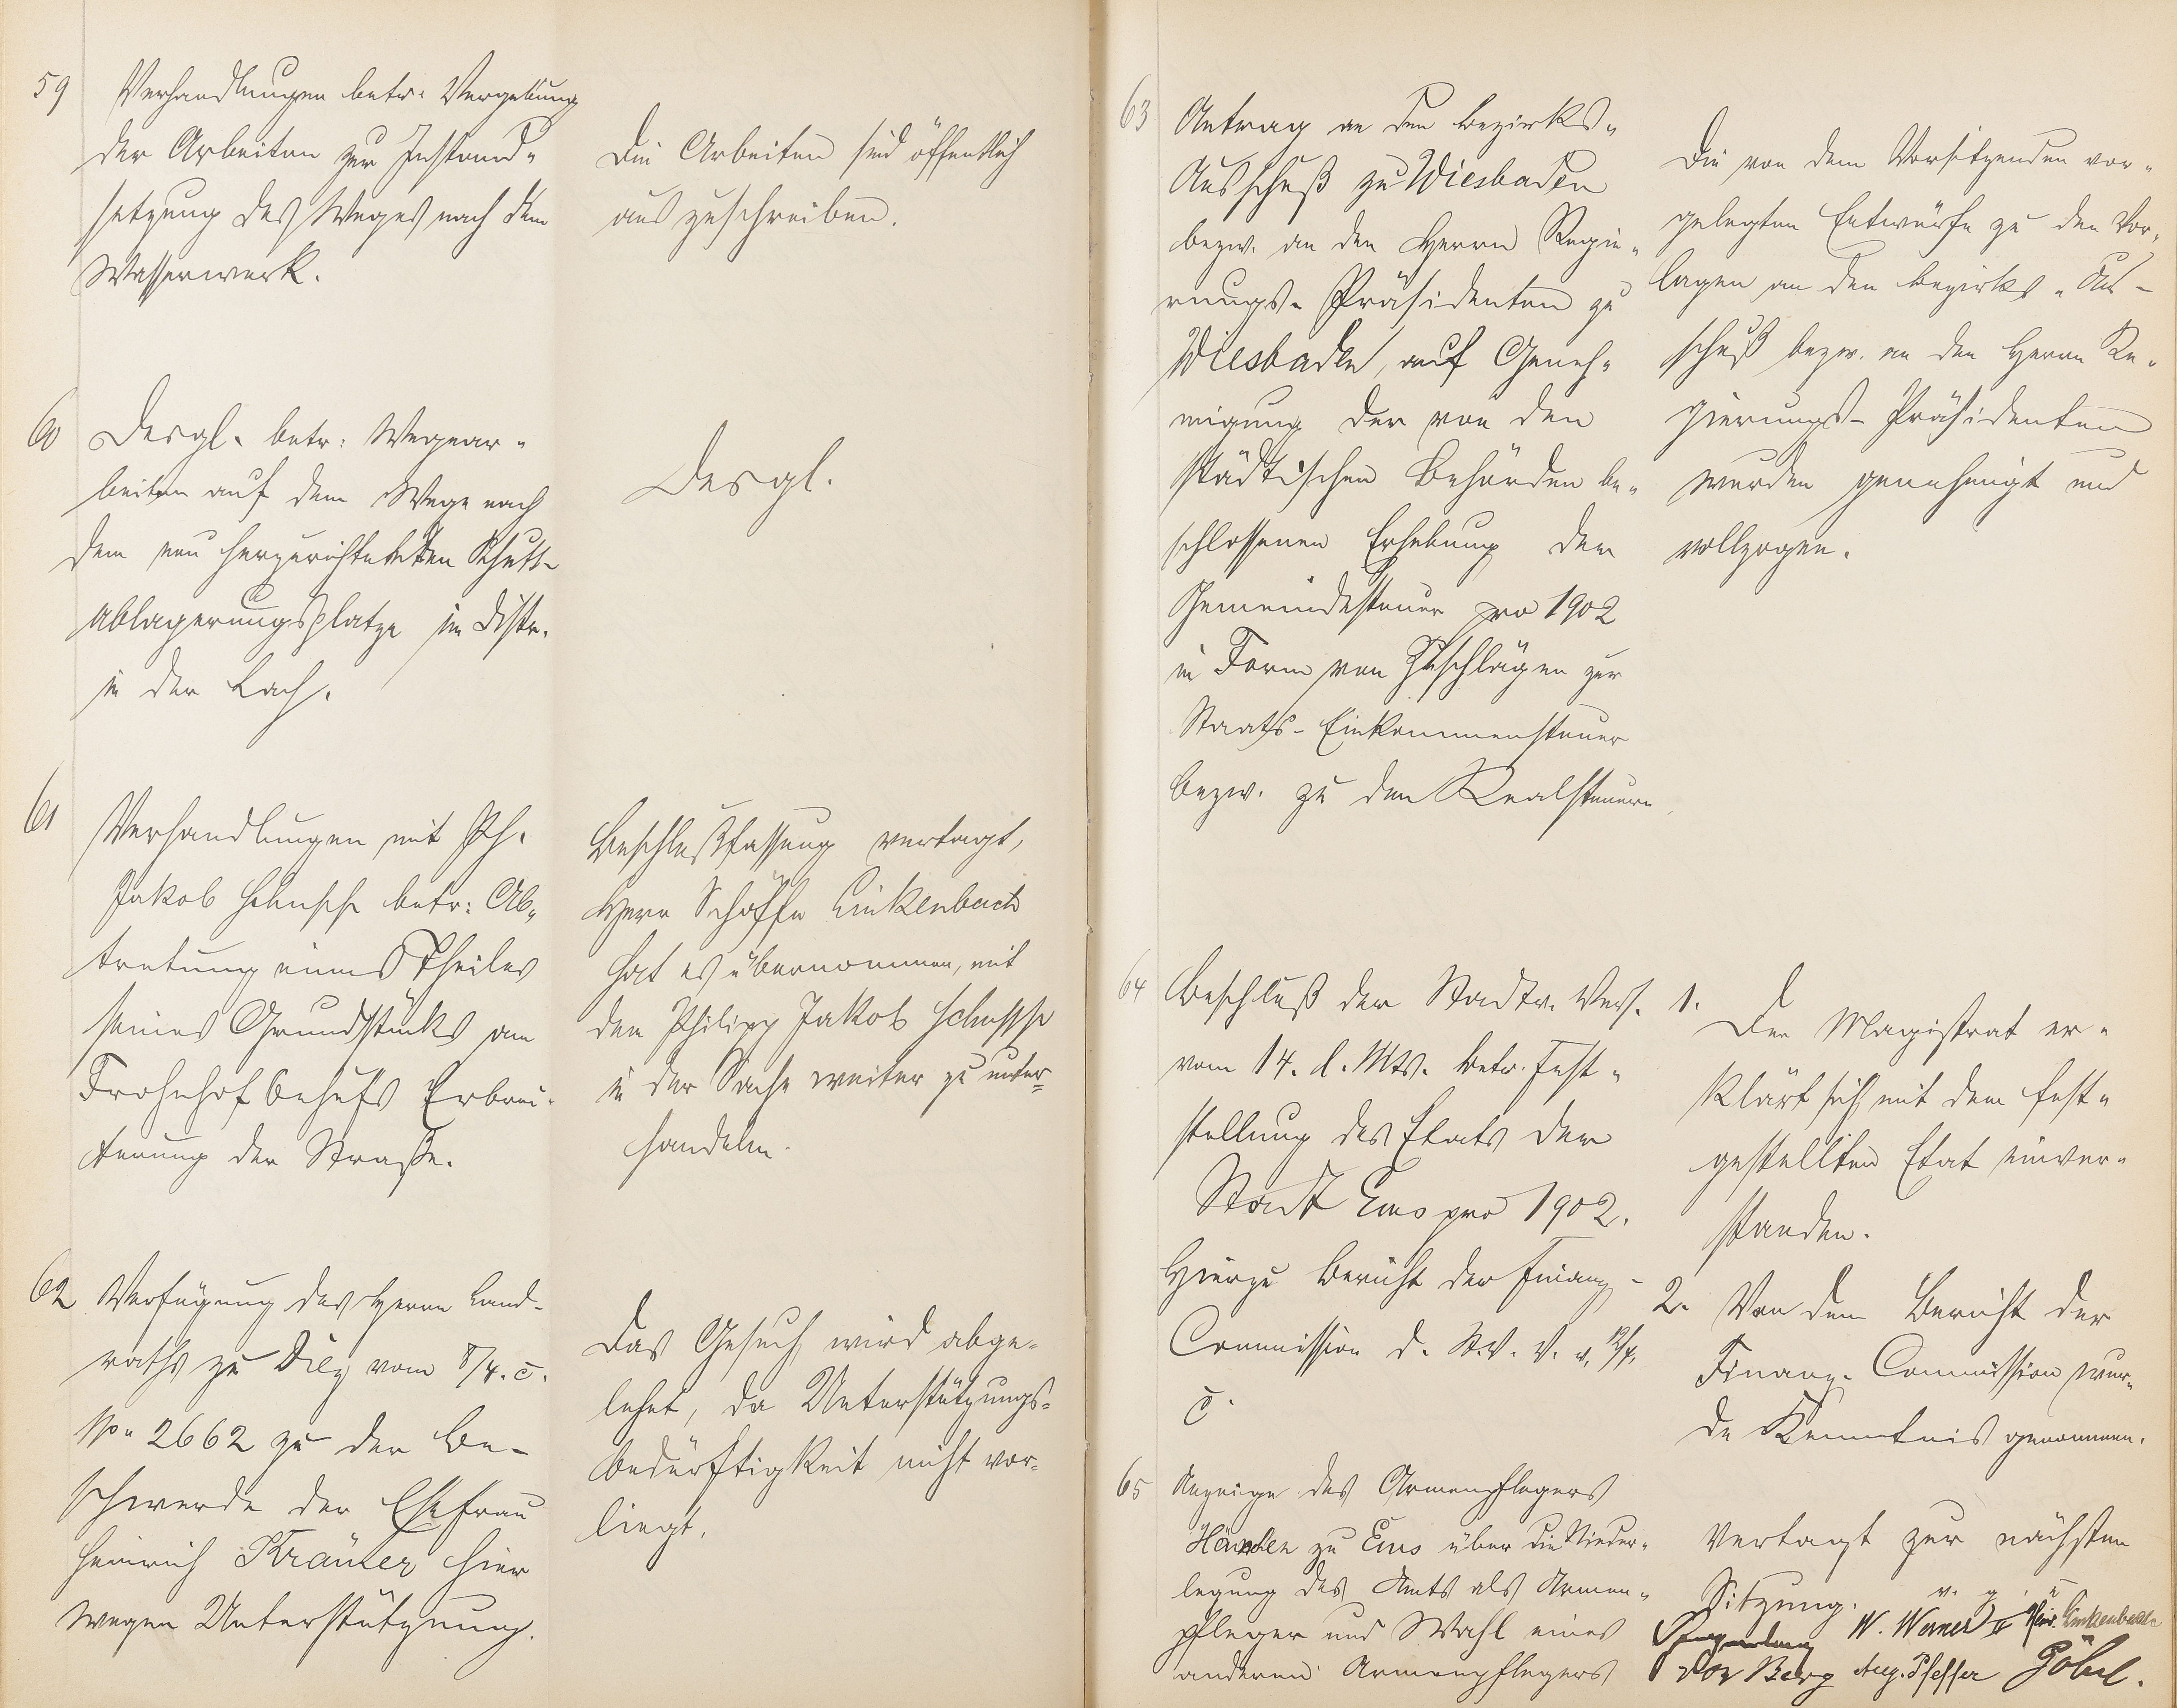 59
Verhandlungen betr. Vergebung
der Arbeiten zur Instand-
setzung des Weges nach dem
Wasserwerk.
Die Arbeiten sind öffentlich
auszuschreiben.
60
Desgl. betr: Wegear-
beiten auf dem Wege nach
dem neu hergerichteten Schutt-
ablagerungsplatze im Distr.
in der Lach.
Desgl.
61
Verhandlungen mit Ph.
Jakob betr: Ab-
tretung eines Theiles
seines Grundstücks am
Frohnhof behufs Erbrei-
terung der Straße.
Beschlußfassung vertagt,
Herr Schöffe Linkenbach
hat es übernommen, mit
dem Philipp Jakob
in der Sache weiter zu unter-
handeln.
62
Verfügung des Herrn Land-
raths zu Diez vom 8/4. c.
No. 2662 zu der Be-
schwerde der Ehefrau
Heinrich Kräuter hier
wegen Unterstützung.
Das Gesuch wird abge-
lehnt, da Unterstützungs-
bedürftigkeit nicht vor-
liegt.
63
Antrag an den Bezirks-
Ausschuß zu Wiesbaden
bezw. an den Herrn Regie-
rungs-Präsidenten zu
Wiesbaden, auf Geneh-
migung der von den
städtischen Behörden be-
schlossenen Erhebung der
Gemeindesteuer pro 1902
in Form von Zuschlägen zur
Staats-Einkommensteuer
bezw. zu den Realsteuern.
Die von dem Vorsitzenden vor-
gelegten Entwürfe zu den Vor-
lagen an den Bezirks-Aus-
schuß bezw. an den Herrn Re-
gierungs-Präsidenten
wurden genehmigt und
vollzogen.
64
Beschluß der Stadtv. Vers.
vom 14. d. Mts. betr. Fest-
stellung des Etats der
Stadt Ems pro 1902.
Hierzu Bericht der Finanz-
Commission d. St. V. V. v. 12/4.
c.
1. Der Magistrat er-
klärt sich mit dem fest-
gestellten Etat einver-
standen.
2. Von dem Bericht der
Finanz-Commission wur-
de Kenntnis genommen.
65
Anzeige des Armenpflegers
zu Ems über die Nieder-
legung des Amts als Armen-
pfleger und Wahl eines
anderen Armenpflegers
Vertagt zur nächsten
Sitzung.
v. g. u.
W. Werner II Heinr. Linkenbach
Aug. Pfeffer Göbel.